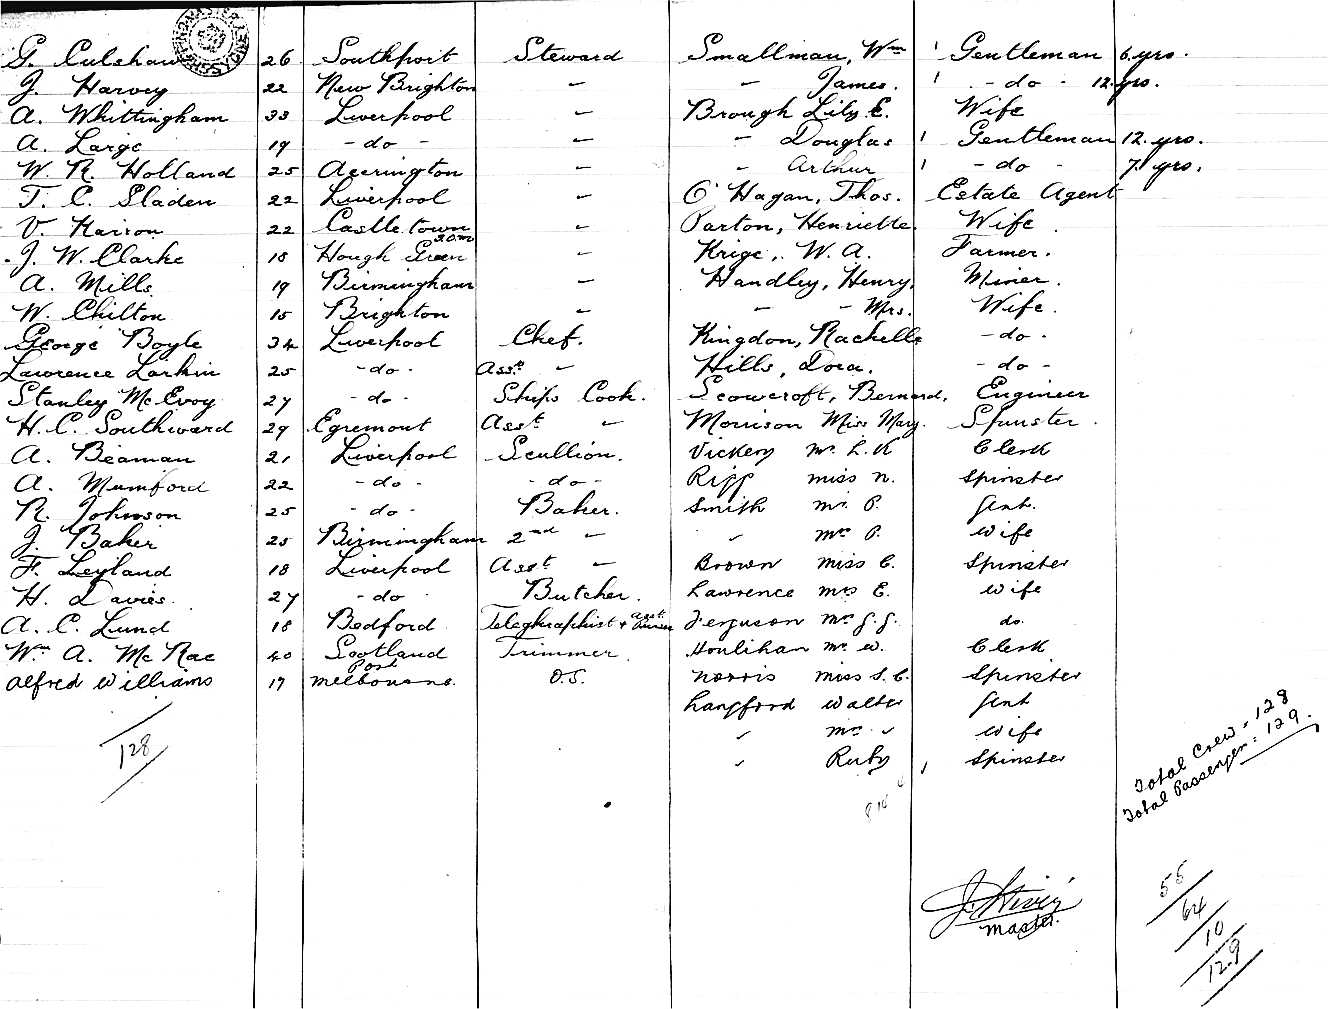 G. Culshaw 26 Southport Steward Smallman, Wm 1 Gentleman 6 yrs.
J. Harvey 22 New Brighton " " James. 1 - do - 12 yrs.
A. Whittingham 33 Liverpool " Brough Lily E. Wife
A. Large 19 - do - " " Douglas 1 Gentleman 12 yrs.
W. R. Holland 25 Accrington " " Arthur 1 - do - 7 yrs.
T. C. Sladen 22 Liverpool " O'Hagan, Thos. Estate Agent
V. Karron 22 Castletown I.O.M. " Parton, Henrietta Wife.
J. W. Clarke 18 Hough Green " Krige, W. A. Farmer.
A. Mills 19 Birmingham " Handley, Henry, Miner.
W. Chilton 15 Brighton " " " Mrs. Wife.
George Boyle 34 Liverpool Chef. Kingdon, Rachelle - do -
Lawrence Larkin 25 - do - Asst. " Hills, Dora. - do -
Stanley McEvoy 27 - do - Ships Cook. Scowcroft, Bernard, Engineer
H. C. Southward 29 Egremont Asst " Morrison Miss Mary. Spinster.
A. Beaman 21 Liverpool Scullion. Vickery Mr. L. K Clerk
A. Mumford 22 - do - - do - Ripp miss n. Spinster
R. Johnson 25 - do - Baker. Smith Mr. P. Gent.
J. Baker 25 Birmingham 2nd " " Mrs P. Wife
F. Leyland 18 Liverpool Asst " Brown miss C. Spinster
H. Davies 27 - do - Butcher. Lawrence mrs E. Wife
A. C. Lund 18 Bedford Telegraphist + asst. Purser Ferguson Mrs J. J. do.
Wm A. McRae 40 Scotland Trimmer. Houlihan Mr. W. Clerk
Alfred Williams 17 Port Melbourne. O.S. Norris miss S. C. Spinster
Langford Walter Gent
128 " Mrs " Wife
" Ruby 1 Spinster
Total Crew = 128
Total Passenger = 129.
J. 
Master.
55
64
10
129